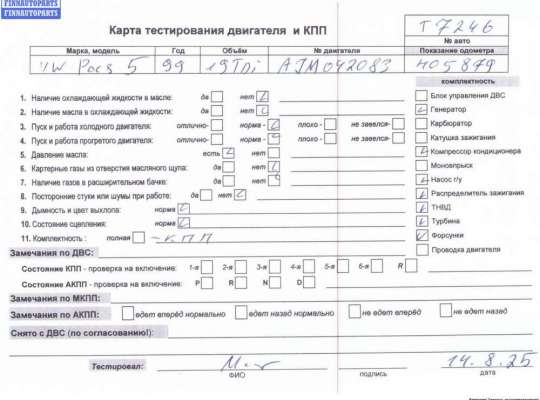 FINNAUTOPARTS
FINNAUTOPARTS
Карта тестирования двигателя и КПП
T7246
№ авто
Марка, модель Год Объём № двигателя Показание одометра
VW Pass 5 99 1,9 TDi AJM042083 405879
комплектность
1. Наличие охлаждающей жидкости в масле: да нет
2. Наличие масла в охлаждающей жидкости: да нет
3. Пуск и работа холодного двигателя: отлично- норма - плохо - не завелся-
4. Пуск и работа прогретого двигателя: отлично- норма - плохо - не завелся-
5. Давление масла: есть нет
6. Картерные газы из отверстия масляного щупа: да нет
7. Наличие газов в расширительном бачке: да нет
8. Посторонние стуки или шумы при работе: да нет
9. Дымность и цвет выхлопа: норма
10. Состояние сцепления: норма
11. Комплектность : полная - КПП
Блок управления ДВС
Генератор
Карбюратор
Катушка зажигания
Компрессор кондиционера
Моновпрыск
Насос г/у
Распределитель зажигания
ТНВД
Турбина
Форсунки
Проводка двигателя
Замечания по ДВС:
Состояние КПП - проверка на включение: 1-я 2-я 3-я 4-я 5-я 6-я R
Состояние АКПП - проверка на включение: P R N D
Замечания по МКПП:
Замечания по АКПП: едет вперёд нормально едет назад нормально не едет вперёд не едет назад
Снято с ДВС (по согласованию!):
Тестировал: 14.8.25
ФИО подпись дата